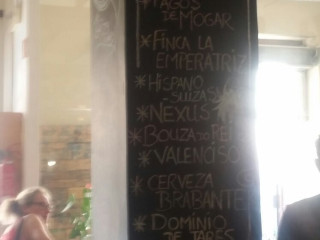 * PAGOS
DE MOGAR
* FINCA LA
EMPERATRIZ
* HISPANO
-SUIZAS
* NEXUS
* BOUZA DO REI
* VALENCISO
* CERVEZA
BRABANTE
* DOMINIO
DE TARES